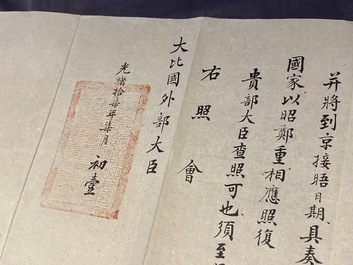 并將到京接晤日期具奏
國家以昭鄭重相應照復
貴部大臣查照可也須至
右照會
大比國外部大臣
光緒拾 年柒月初壹